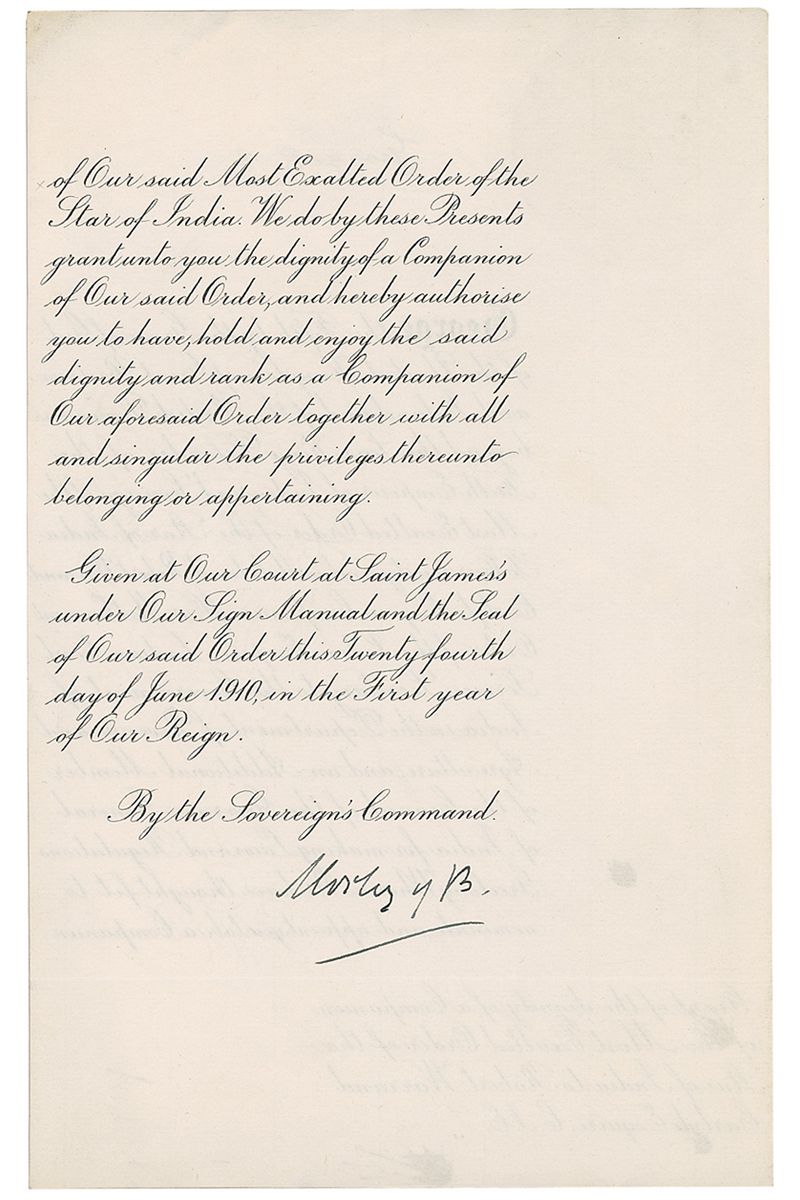 of Our said Most Exalted Order of the
Star of India. We do by these Presents
grant unto you the dignity of a Companion
of Our said Order, and hereby authorise
you to have, hold and enjoy the said
dignity and rank as a Companion of
Our aforesaid Order together with all
and singular the privileges thereunto
belonging or appertaining.
Given at Our Court at Saint James's
under Our Sign Manual and the Seal
of Our said Order this Twenty fourth
day of June 1910, in the First year
of Our Reign.
By the Sovereign's Command.
Morley of B.